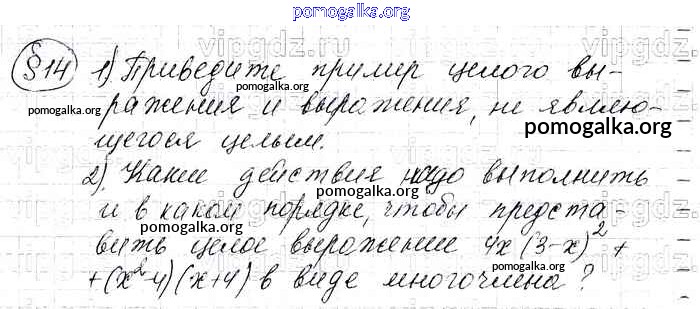 pomogalka.org
vipgdz.ru
§14 1) Приведите пример целого вы-
pomogalka.org
ражения и выражения, не являю-
pomogalka.org
щегося целым.
2) Какие действия надо выполнить
pomogalka.org
и в каком порядке, чтобы предста-
pomogalka.org
вить целое выражение 4x(3-x)² +
+(x²-4)(x+4) в виде многочлена?
pomogalka.org